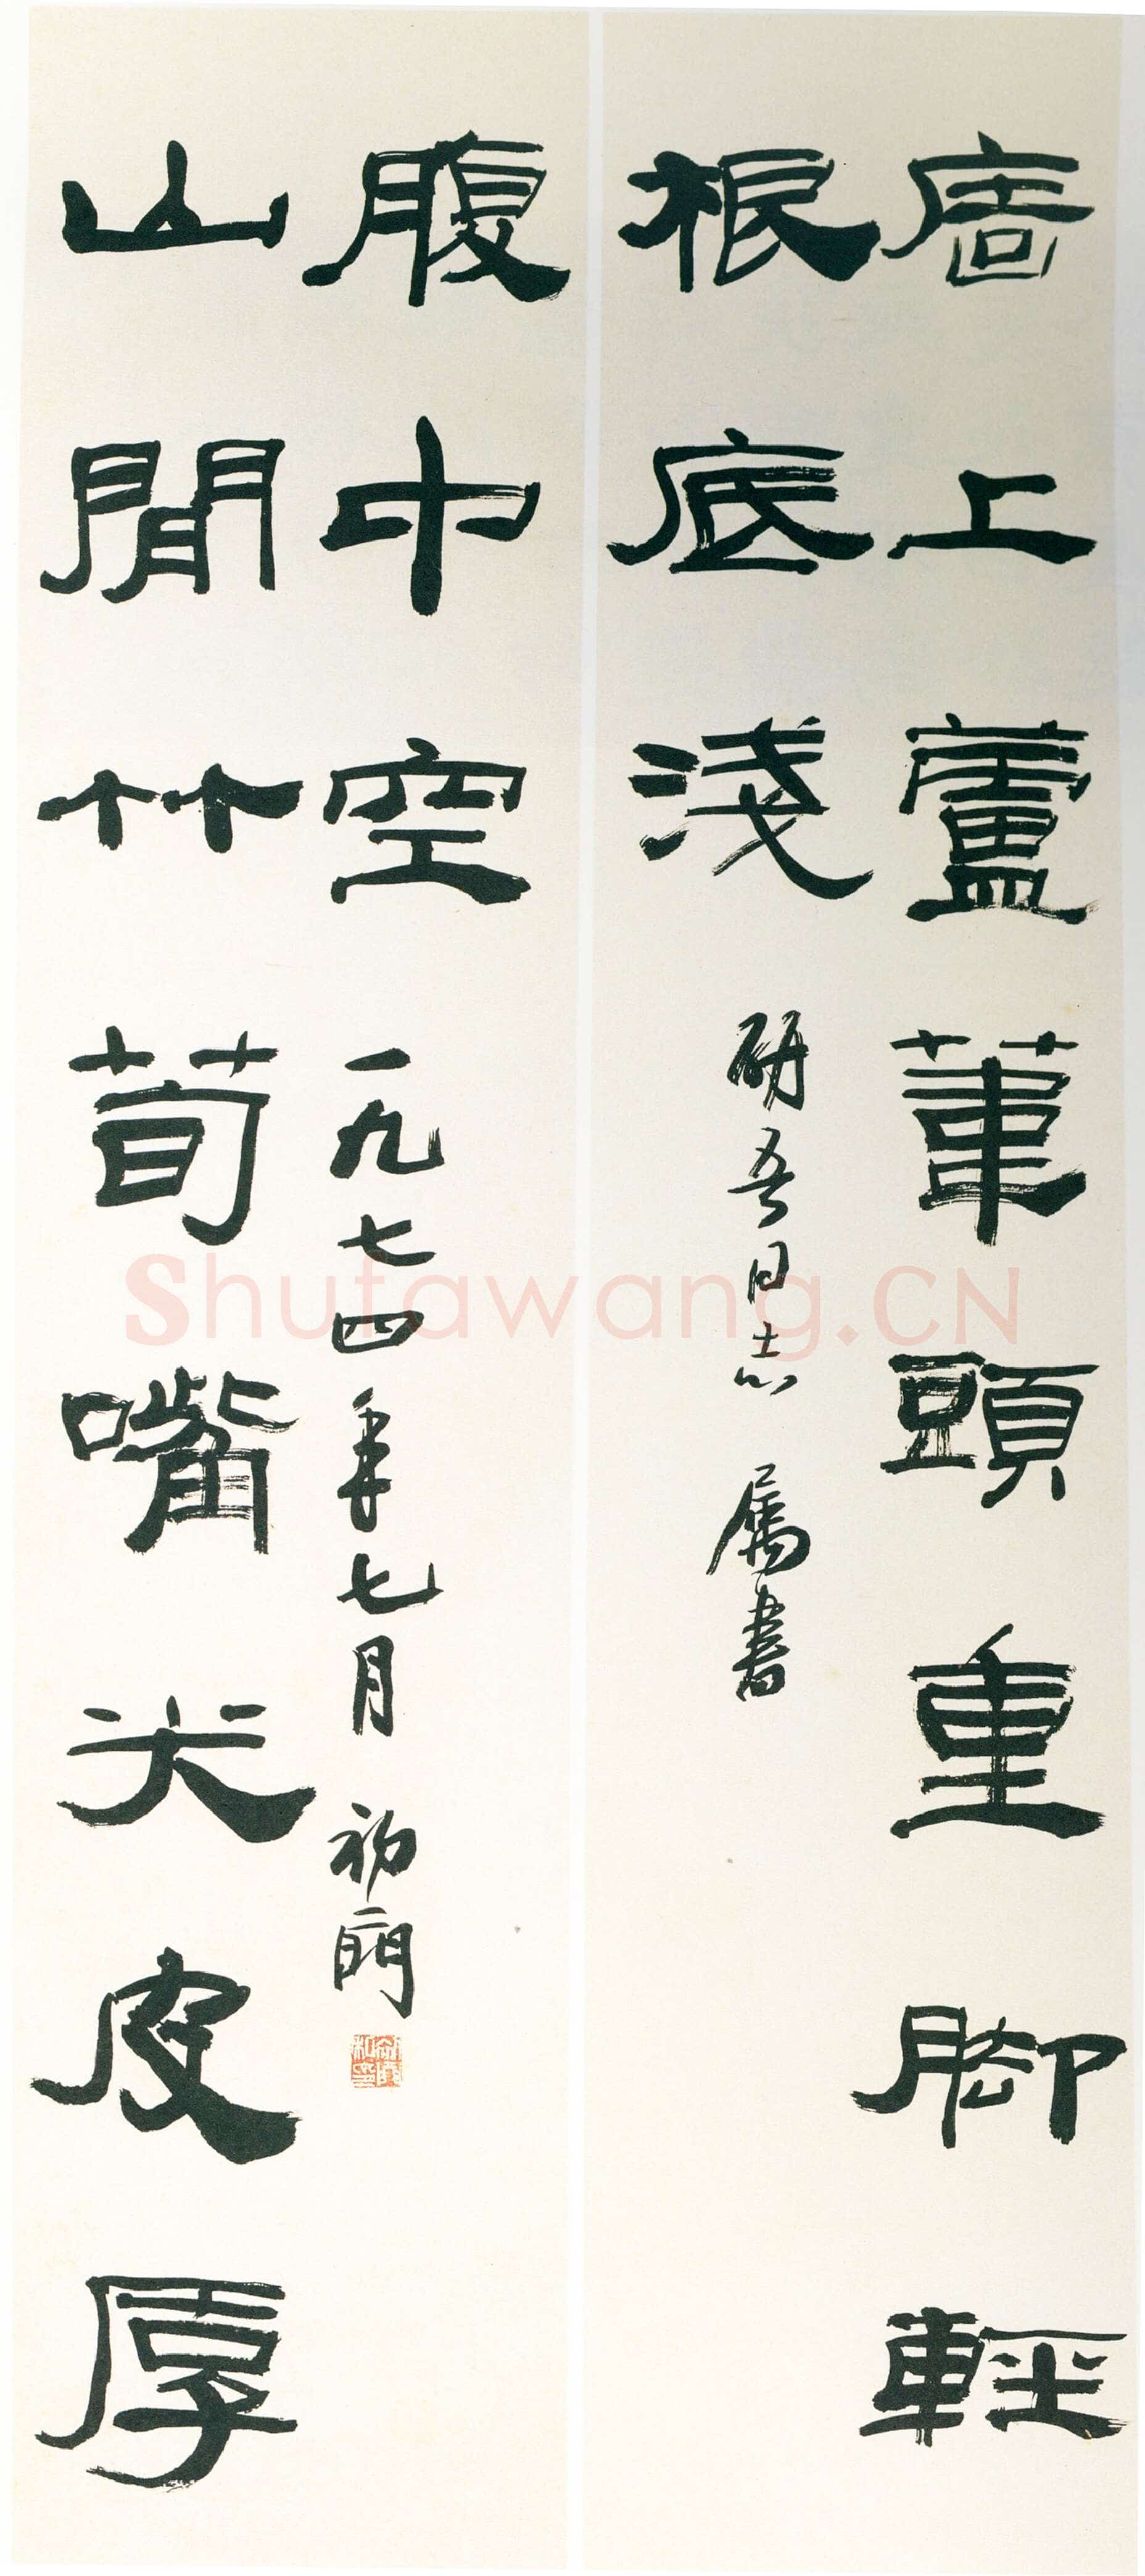 廧上蘆葦頭重脚輕
根底淺
研吾同志 属書
山閒竹筍嘴尖皮厚
腹中空
一九七四年七月
Shufawang.CN